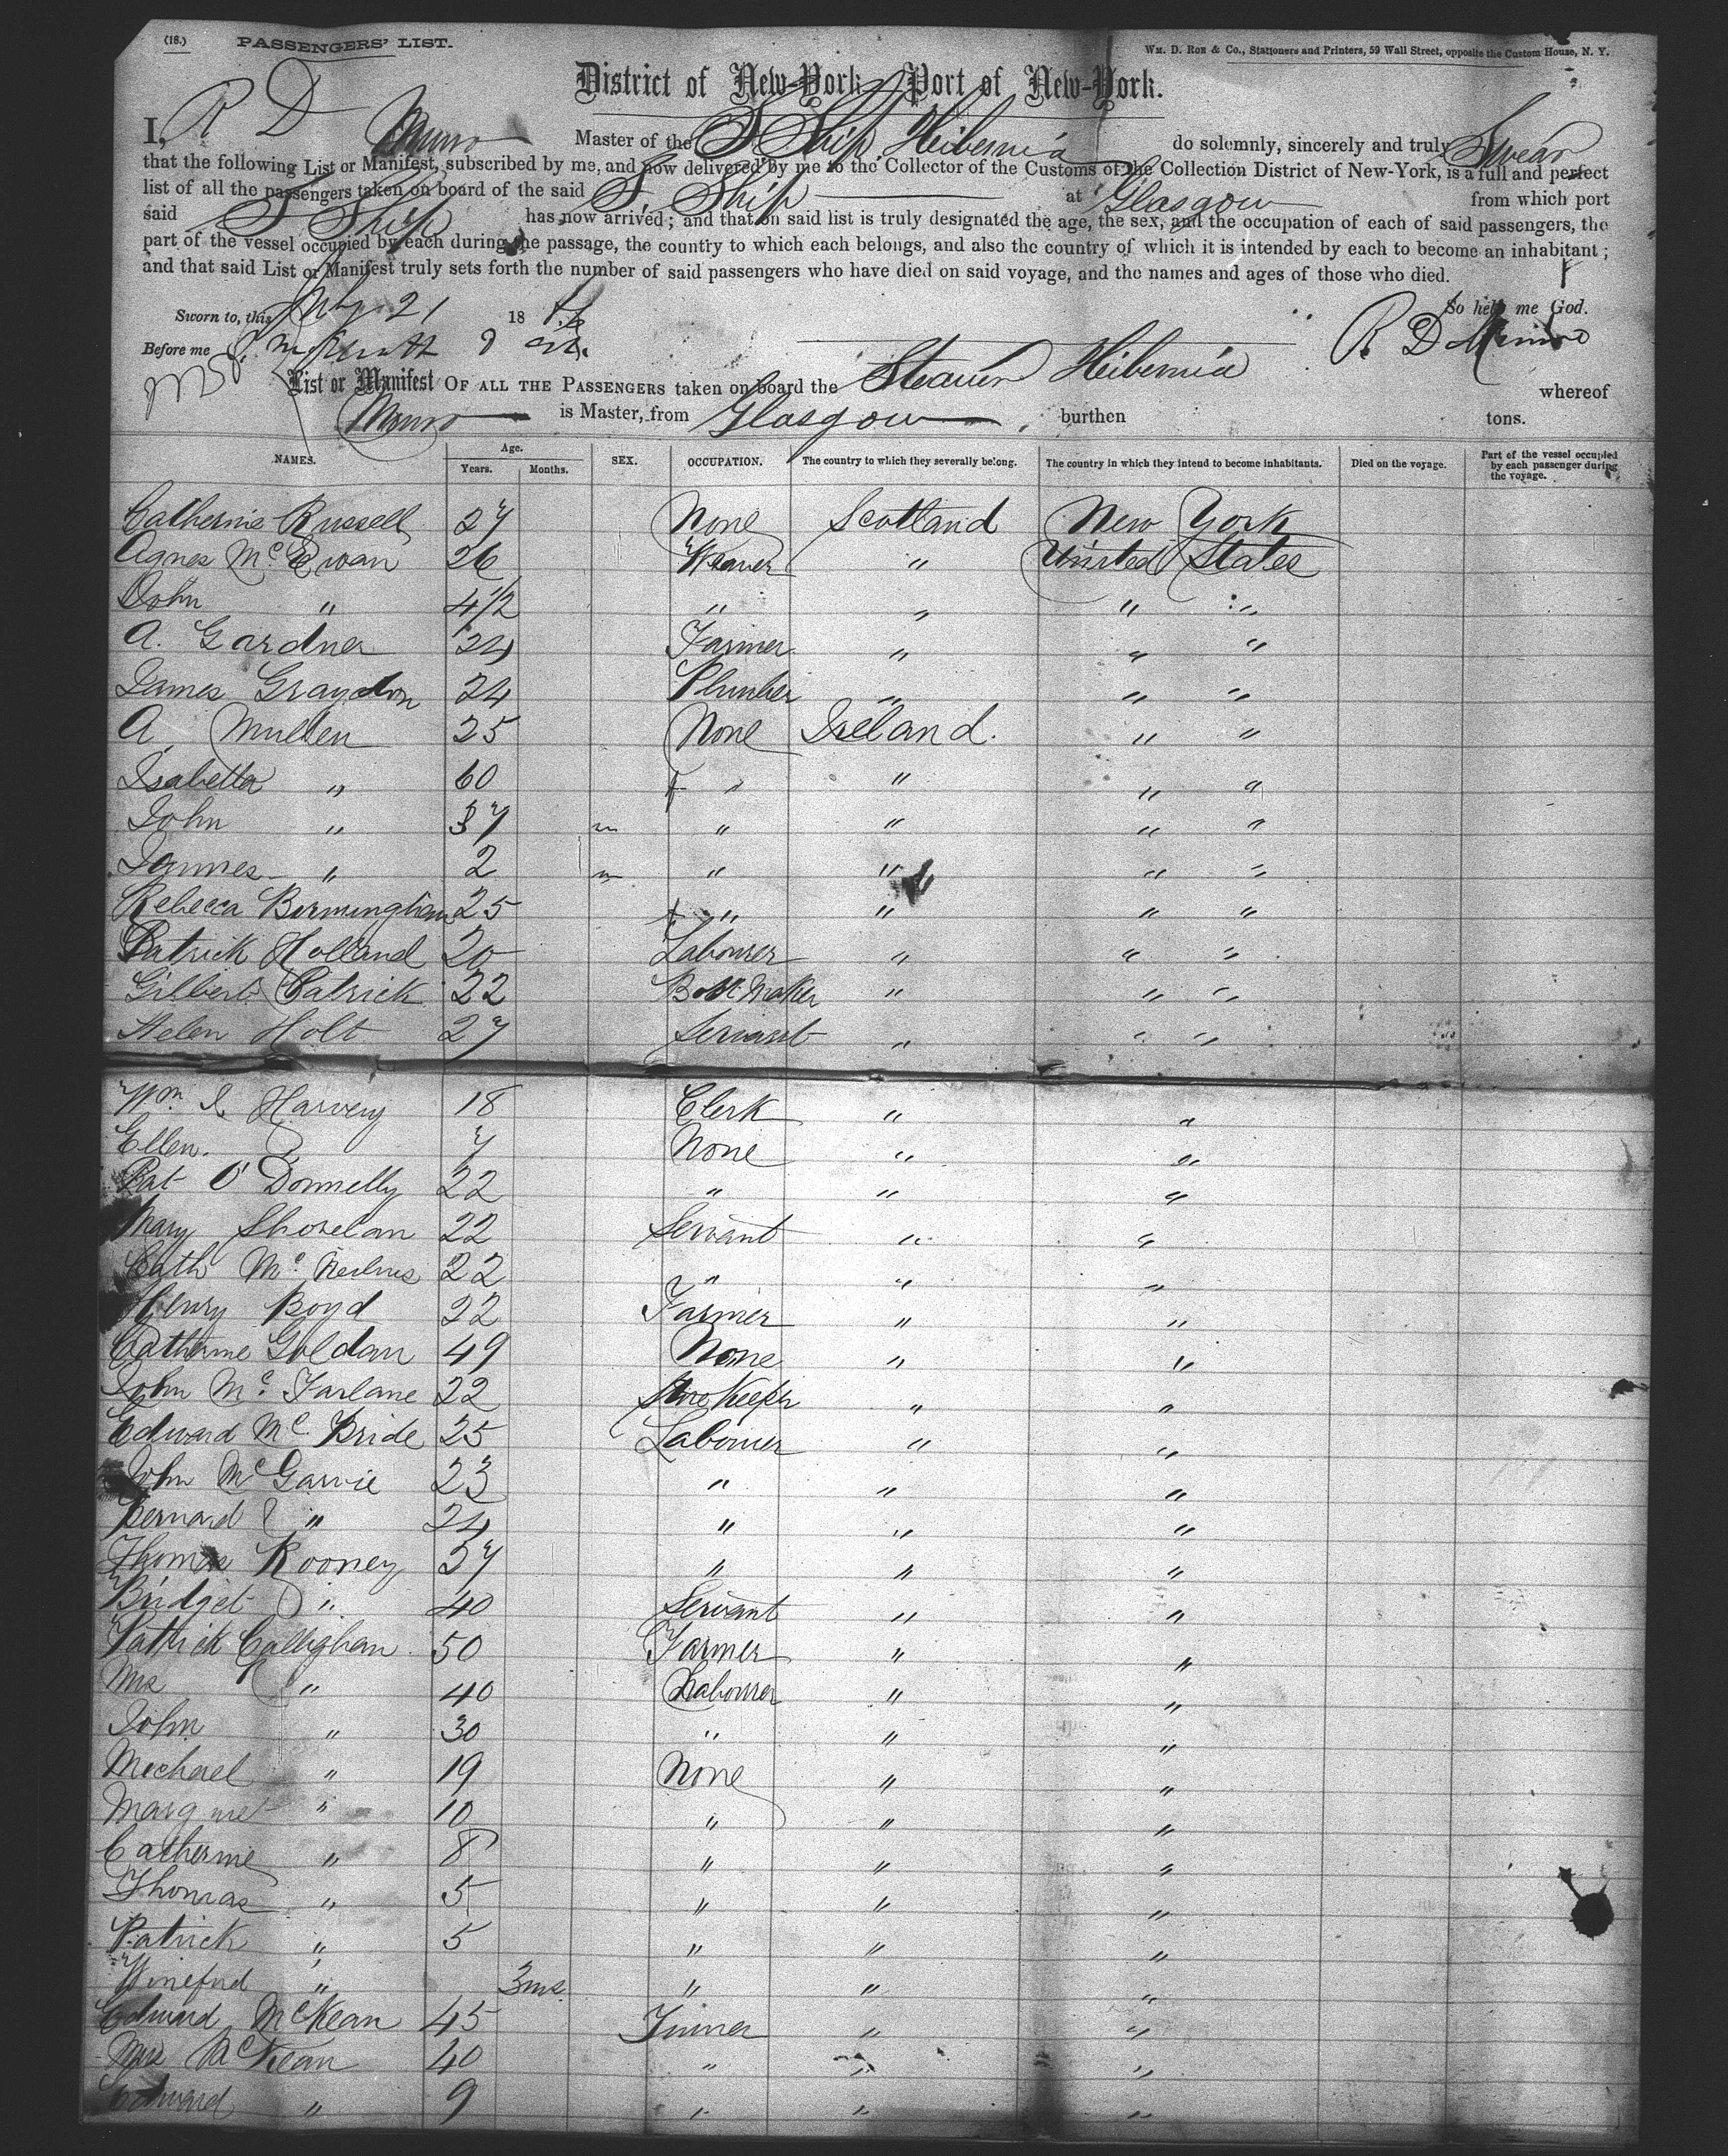 (18.) PASSENGERS' LIST. Wm. D. Roe & Co., Stationers and Printers, 59 Wall Street, opposite the Custom House, N. Y.
District of New-York—Port of New-York.
I, R D Munro Master of the S Ship Heibernia do solemnly, sincerely and truly Swear
that the following List or Manifest, subscribed by me, and now delivered by me to the Collector of the Customs of the Collection District of New-York, is a full and perfect
list of all the passengers taken on board of the said S. Ship at Glasgow from which port
said S Ship has now arrived; and that on said list is truly designated the age, the sex, and the occupation of each of said passengers, the
part of the vessel occupied by each during the passage, the country to which each belongs, and also the country of which it is intended by each to become an inhabitant;
and that said List or Manifest truly sets forth the number of said passengers who have died on said voyage, and the names and ages of those who died.
So help me God.
Sworn to, this 21 18 R D Munro
Before me
List or Manifest OF ALL THE PASSENGERS taken on board the Steamer Heibernia whereof
Munro is Master, from Glasgow burthen tons.
NAMES. Age. Years. Months. SEX. OCCUPATION. The country to which they severally belong. The country in which they intend to become inhabitants. Died on the voyage. Part of the vessel occupied by each passenger during the voyage.
Catherine Russell 27 None Scotland New York
Agnes McEwan 26 Weaver " United States
John " 4 1/2 " " " "
A. Gardner 24 Farmer " " "
James Graydon 24 Plumber " " "
A Mullen 25 None Ireland. " "
Isabella " 60 f " " " "
John " 37 m " " " "
James " 2 m " " " "
Rebecca Birmingham 25 f " " " "
Patrick Holland 20 Labourer " " "
Gilbert Patrick 22 Maker " " "
Helen Holt 27 Servant " " "
Wm. J. Harvey 18 Clerk " "
Ellen. 7 None " "
Pat O'Donnelly 22 " " "
Mary 22 Servant " "
Cath Mc 22 " " "
Henry Boyd 22 Farmer " "
Catherine Goldan 49 None " "
John Mc Farlane 22 Storekeeper " "
Edward Mc Bride 25 Labourer " "
John McGarvie 23 " " "
Bernard " 24 " " "
Thomas Rooney 37 " " "
Bridget " 40 Servant " "
Patrick Callighan 50 Farmer " "
Mrs " 40 Labourer " "
John " 30 " " "
Michael " 19 None " "
Margaret " 10 " " "
Catherine " 8 " " "
Thomas " 5 " " "
Patrick " 5 " " "
Winefrd " 3 ms. " " "
Edward McKean 45 " "
Mrs McKean 40 " " "
Edward " 9 " " "